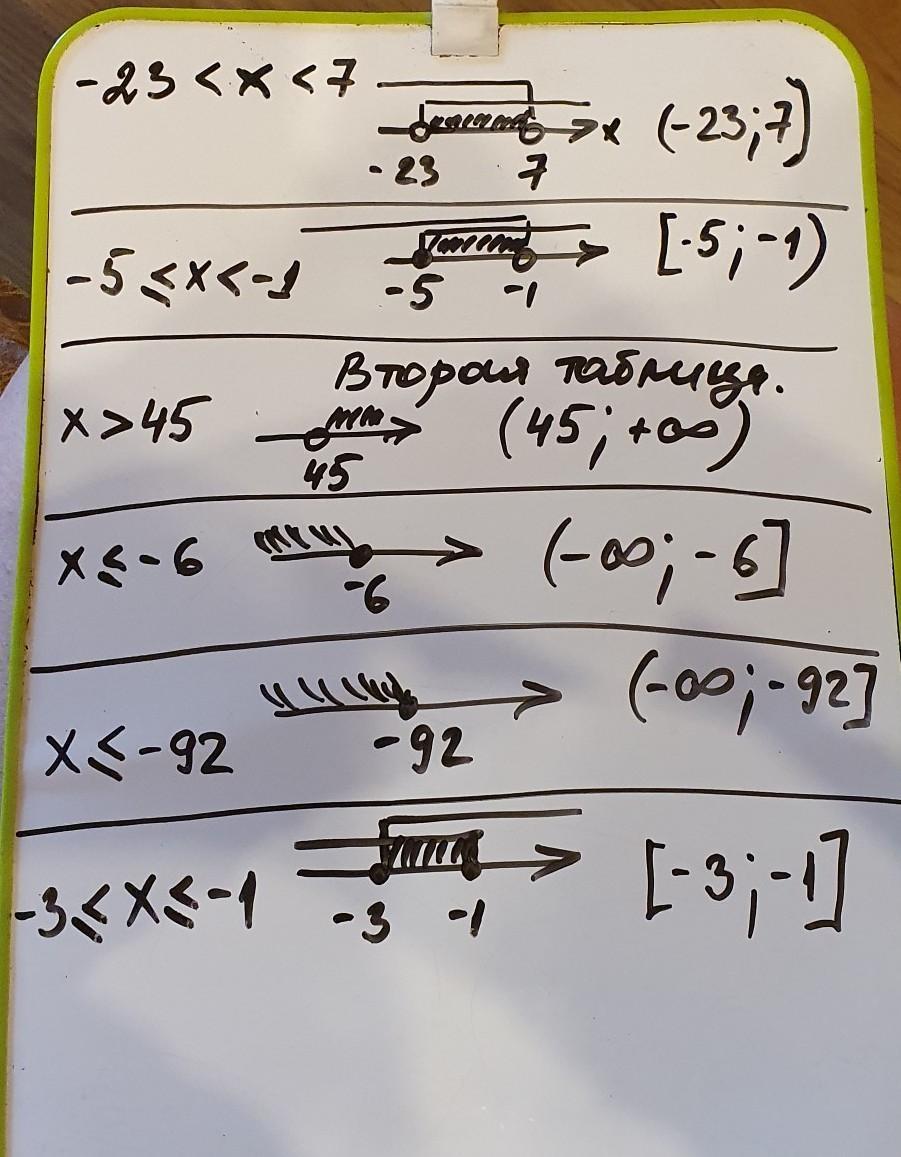 -23 < x < 7 x (-23; 7)
-23 7
-5 ≤ x < -1 [-5; -1)
-5 -1
Вторая таблица.
x > 45 (45; +∞)
45
x ≤ -6 (-∞; -6]
-6
x ≤ -92 (-∞; -92]
-92
-3 ≤ x ≤ -1 [-3; -1]
-3 -1